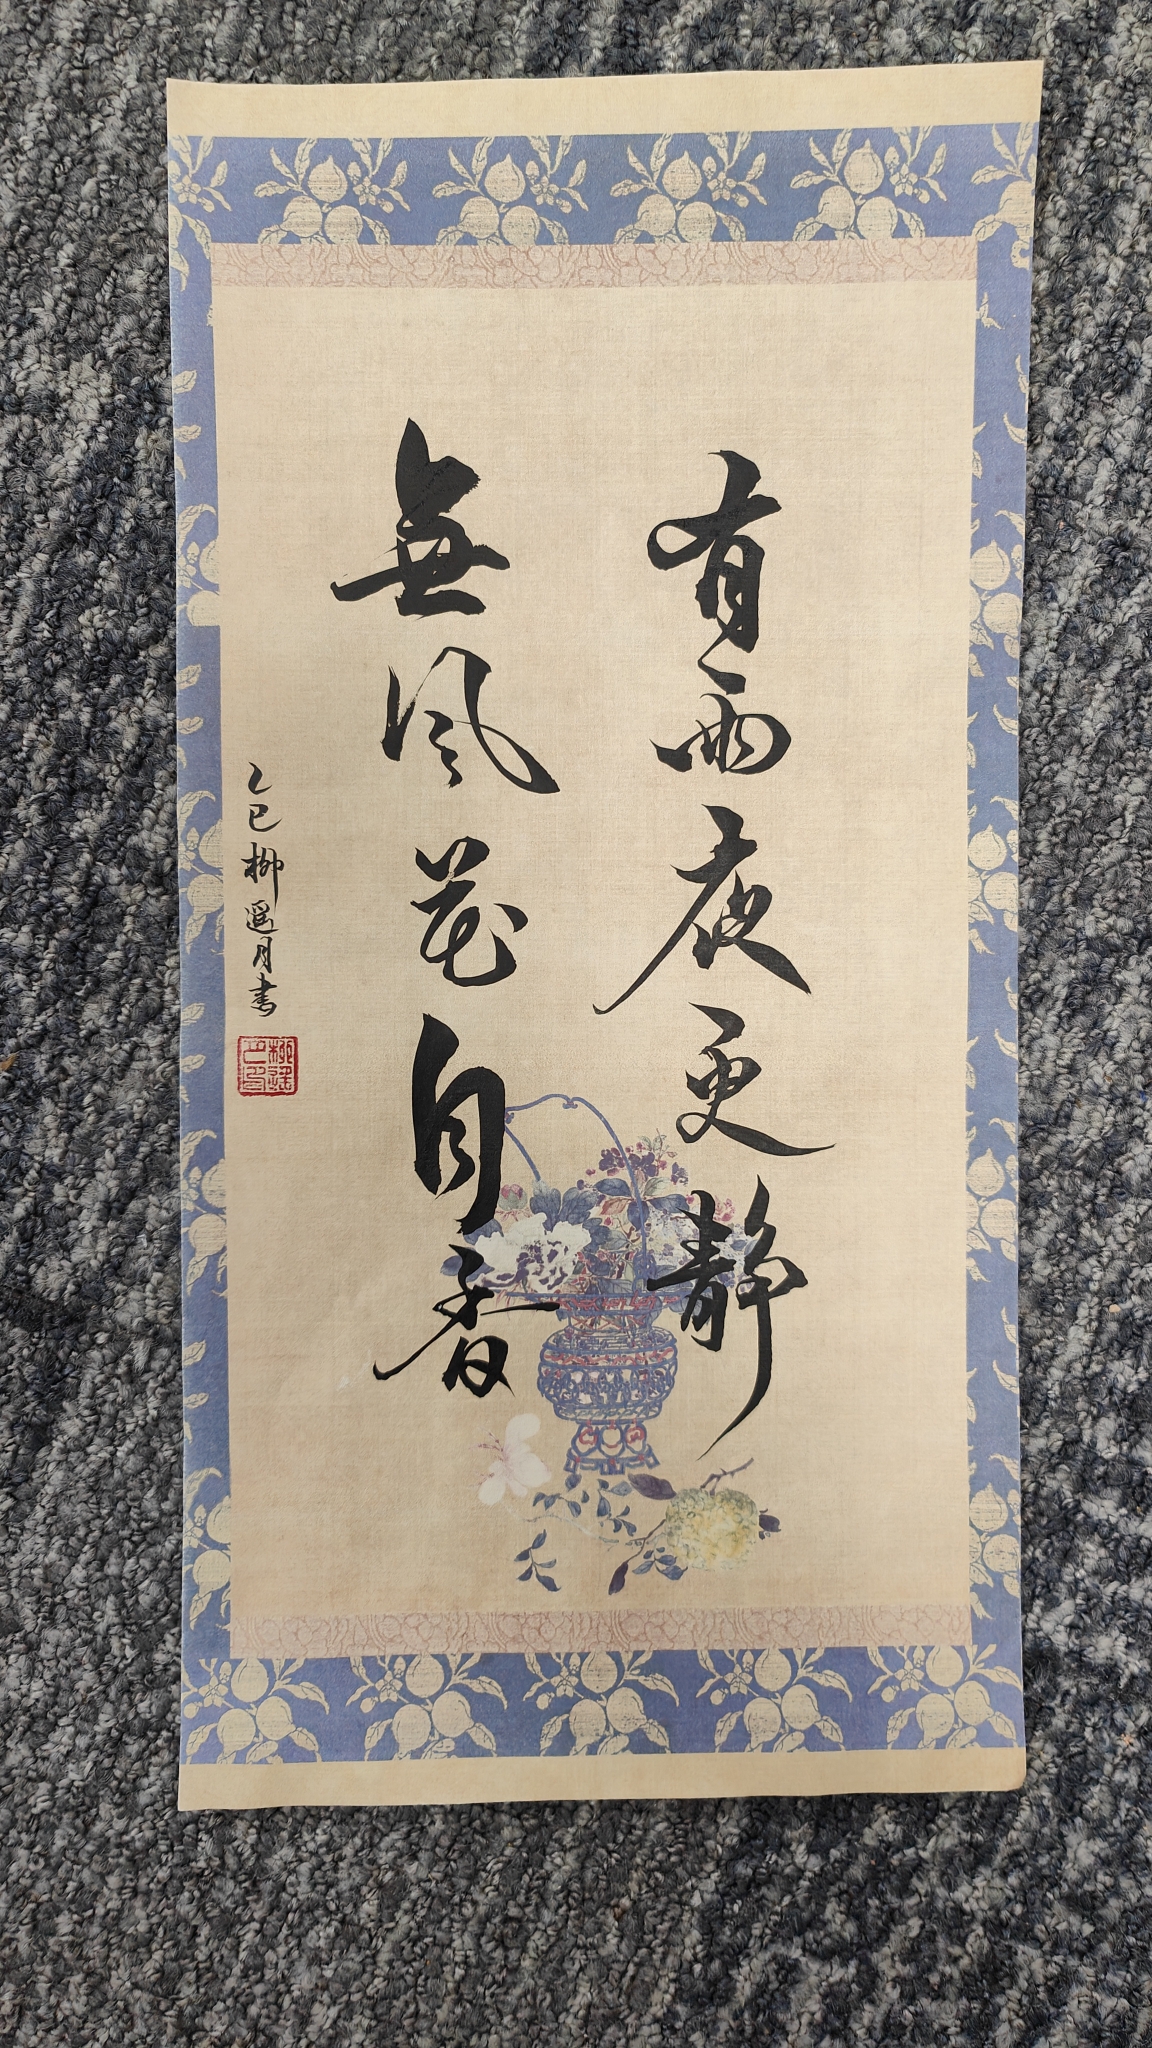 有雨夜更静
無風花自香
乙巳柳遥月書